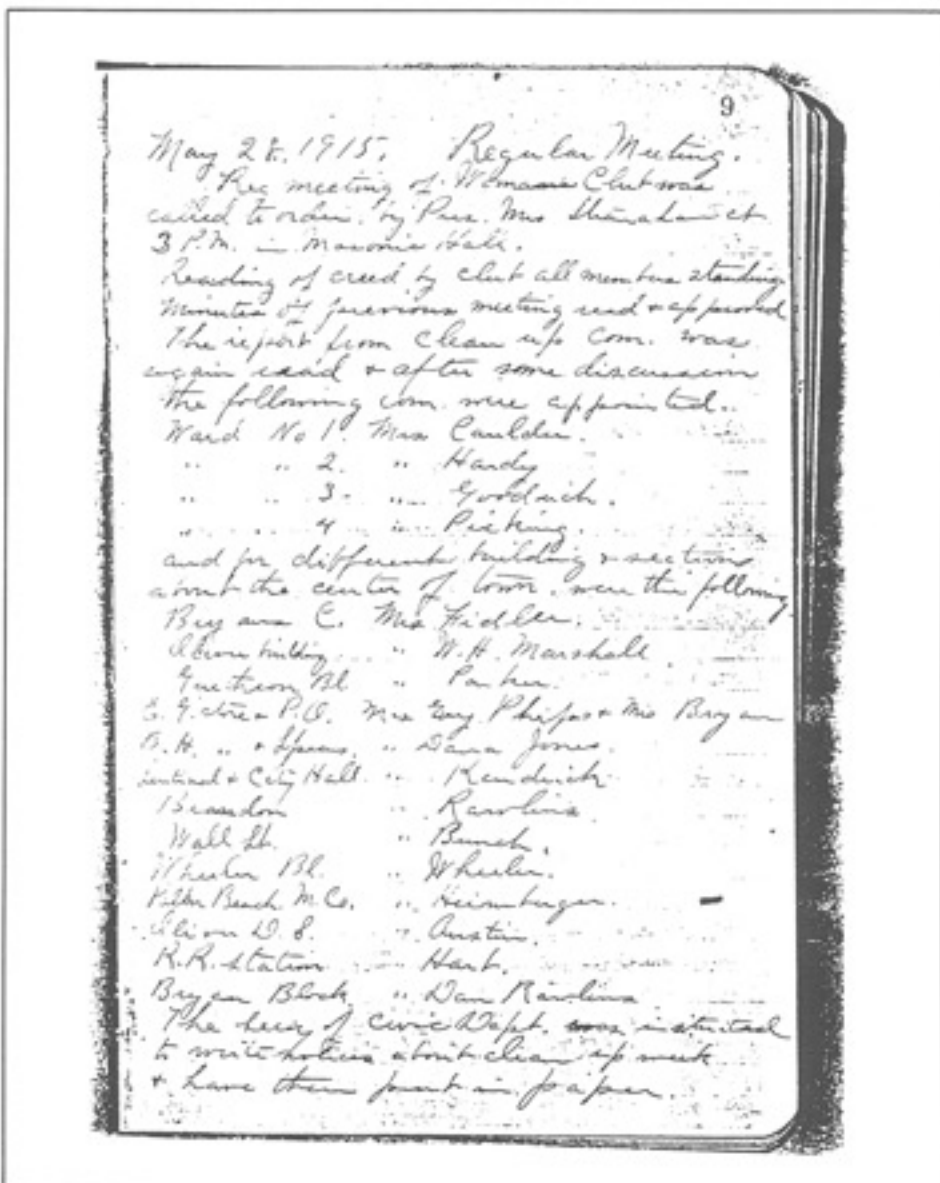 9
May 28, 1915. Regular Meeting.
Reg meeting of Womans Club was
called to order by Pres. Mrs at
3 P.M. in Masonic Hall.
Reading of creed by club all members standing
Minutes of previous meeting read & approved
The report from clean up com. was
again read & after some discussion
the following com. were appointed.
Ward No 1. Mrs Caulder.
" " 2. " Hardy
" " 3. " Goodrich.
" " 4 " Picking.
and for different building & sections
about the center of town were the following
Bryans C. Mrs Fidler.
building " W. H. Marshall
Bl " Parker.
store & P.O. Mrs Guy Phifps & Mrs Bryan
B. H. " & " Dana Jones.
Sentinel & City Hall " Kendrick
Brandon " Rawlins.
Wall St. " Bunch.
Wheeler Bl. " Wheeler.
Beach M. Co. " Heimburger.
D. S. " Austin.
R.R. Station Hart.
Bryan Block " Dan Rawlins
The of Civic Dept. was instructed
to write notices about clean up week
& have them put in paper.